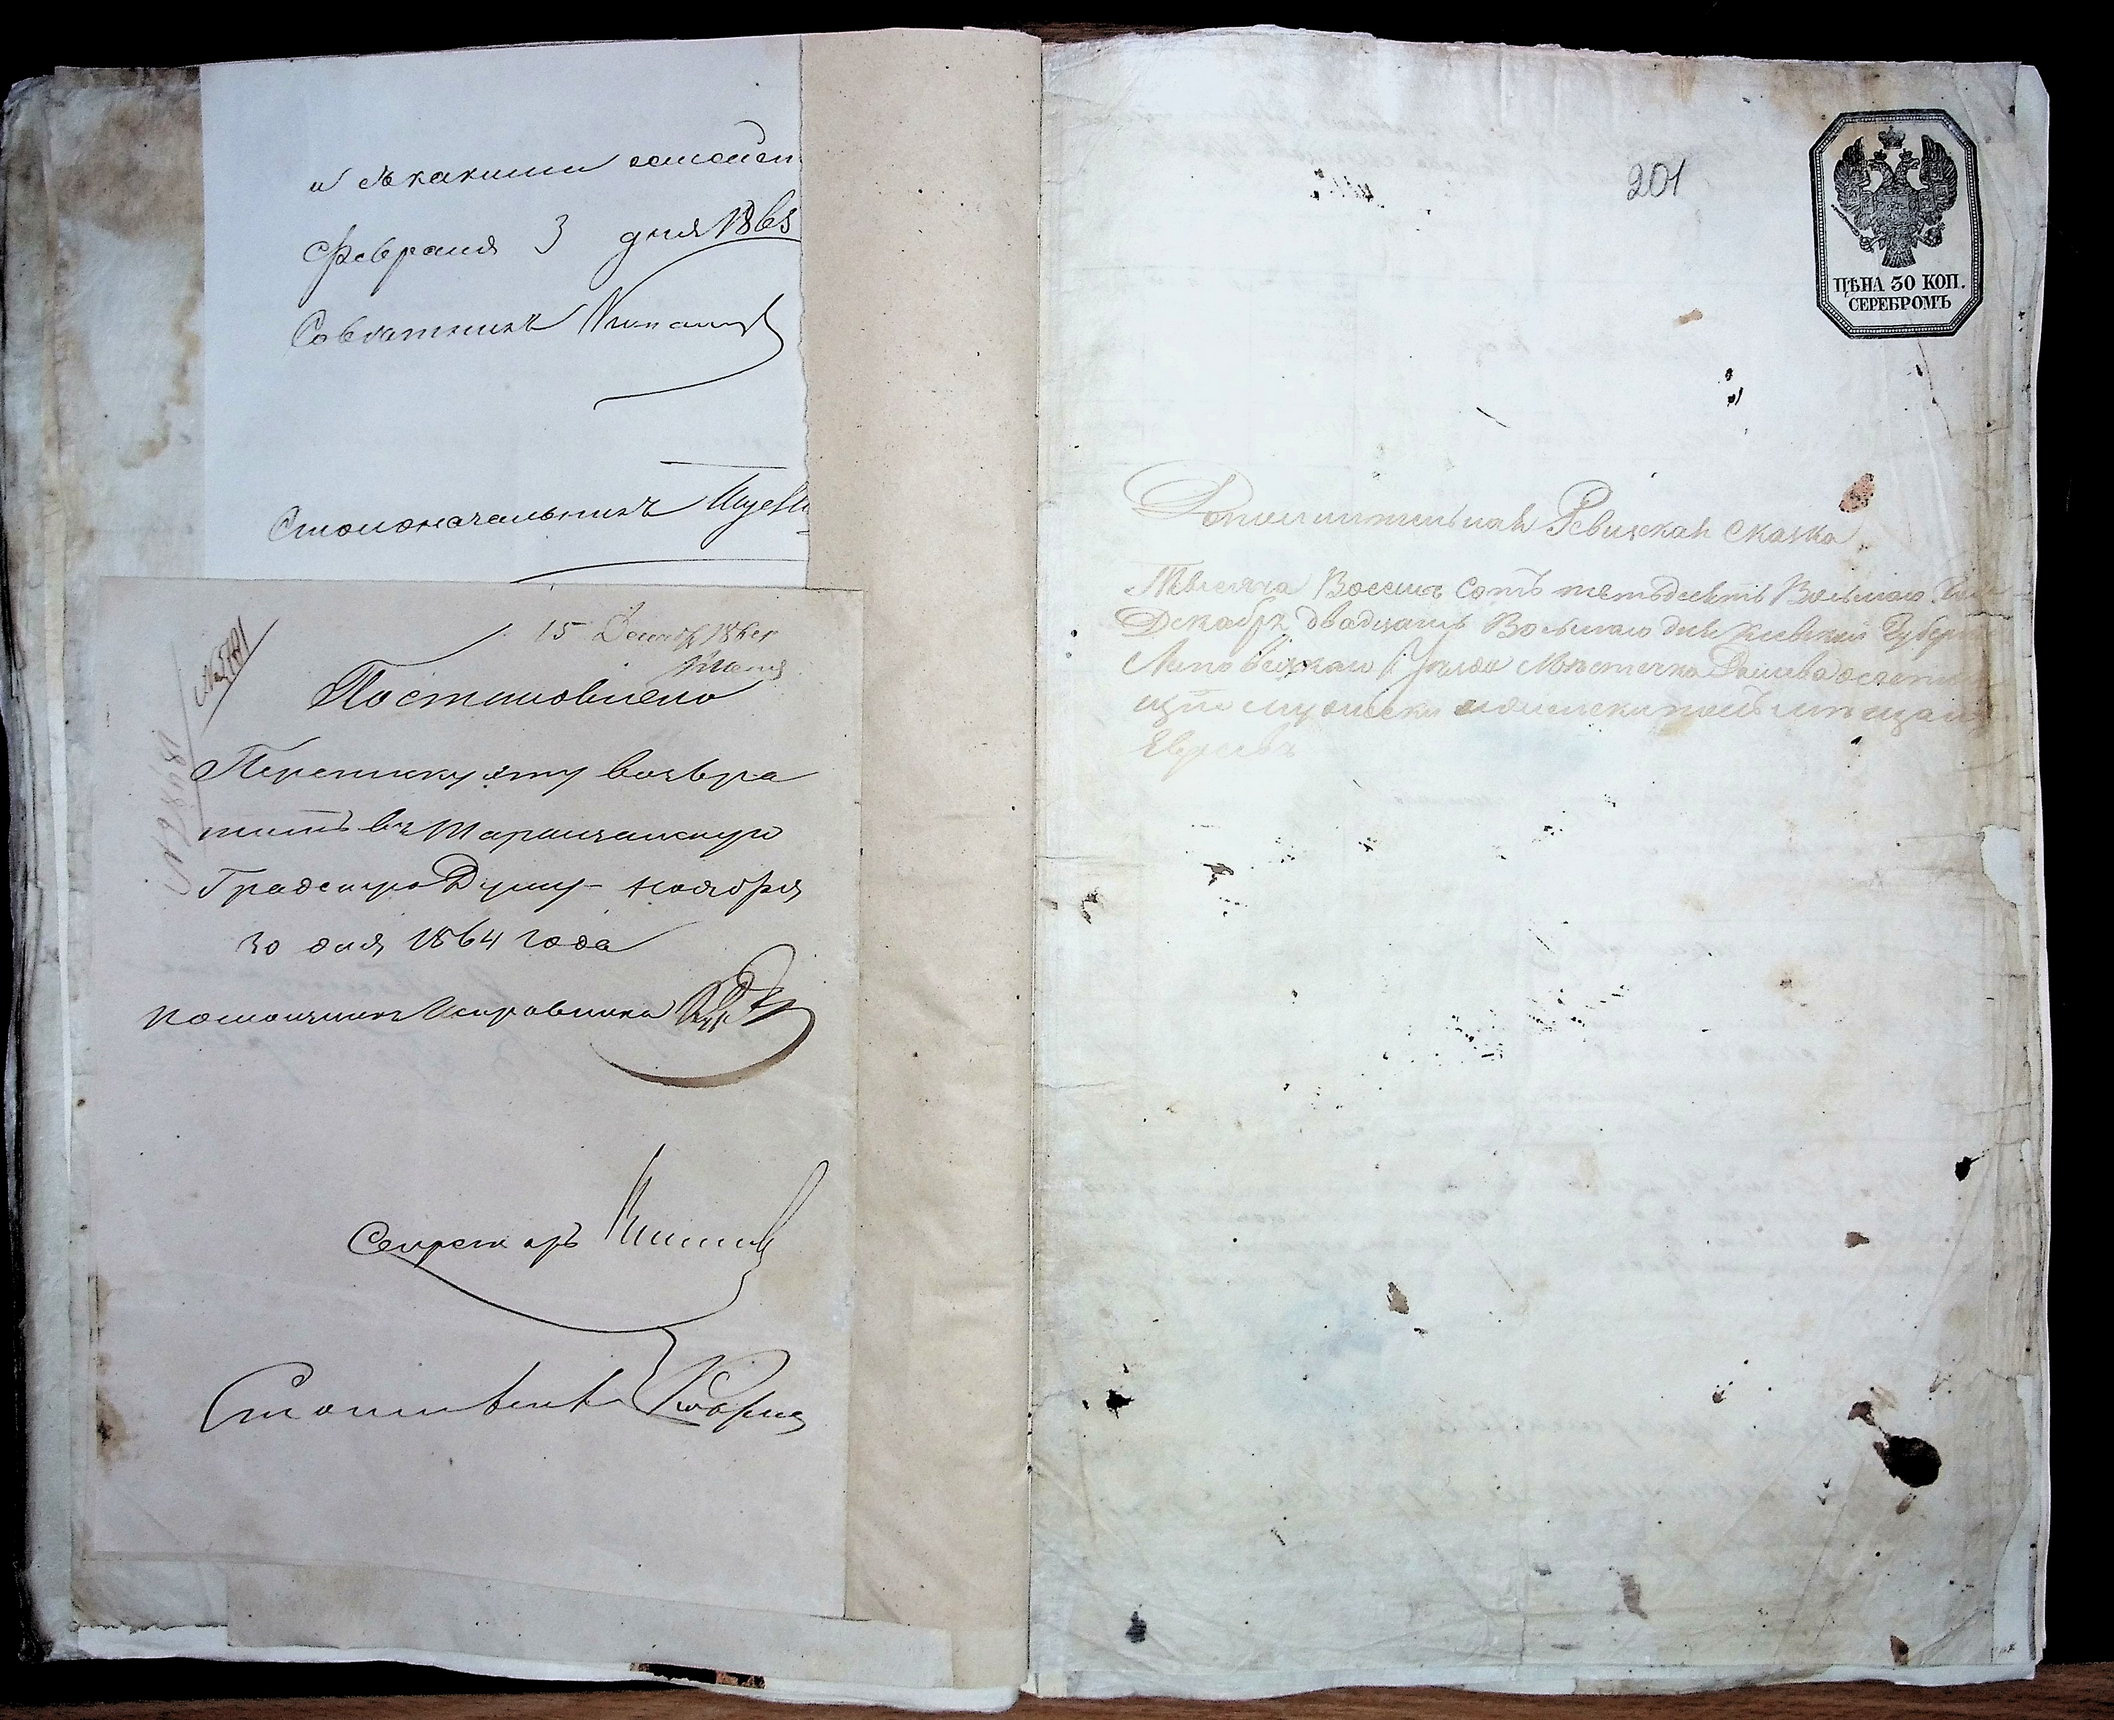 и
Февраля 3 дня 1865
Советникъ
Столоначальникъ
15 Декабр 1864
Постановлено
Переписку эту возвра
тить въ Таращанскую
Градскую Думу - ноября
30 дня 1864 года
Помощникъ Исправника
Секретарь
201
ЦѢНА 30 КОП.
СЕРЕБРОМЪ
Дополнительная Ревизская сказка
Тысяча Восемь Сотъ пятьдесятъ Восьмаго Года
Декабря двадцать Восьмаго дня Киевской Губерніи
Липовецкаго Уезда Местечка Дашева о состоя
щихъ мужеска и женска полъ мещанъ
Евреевъ